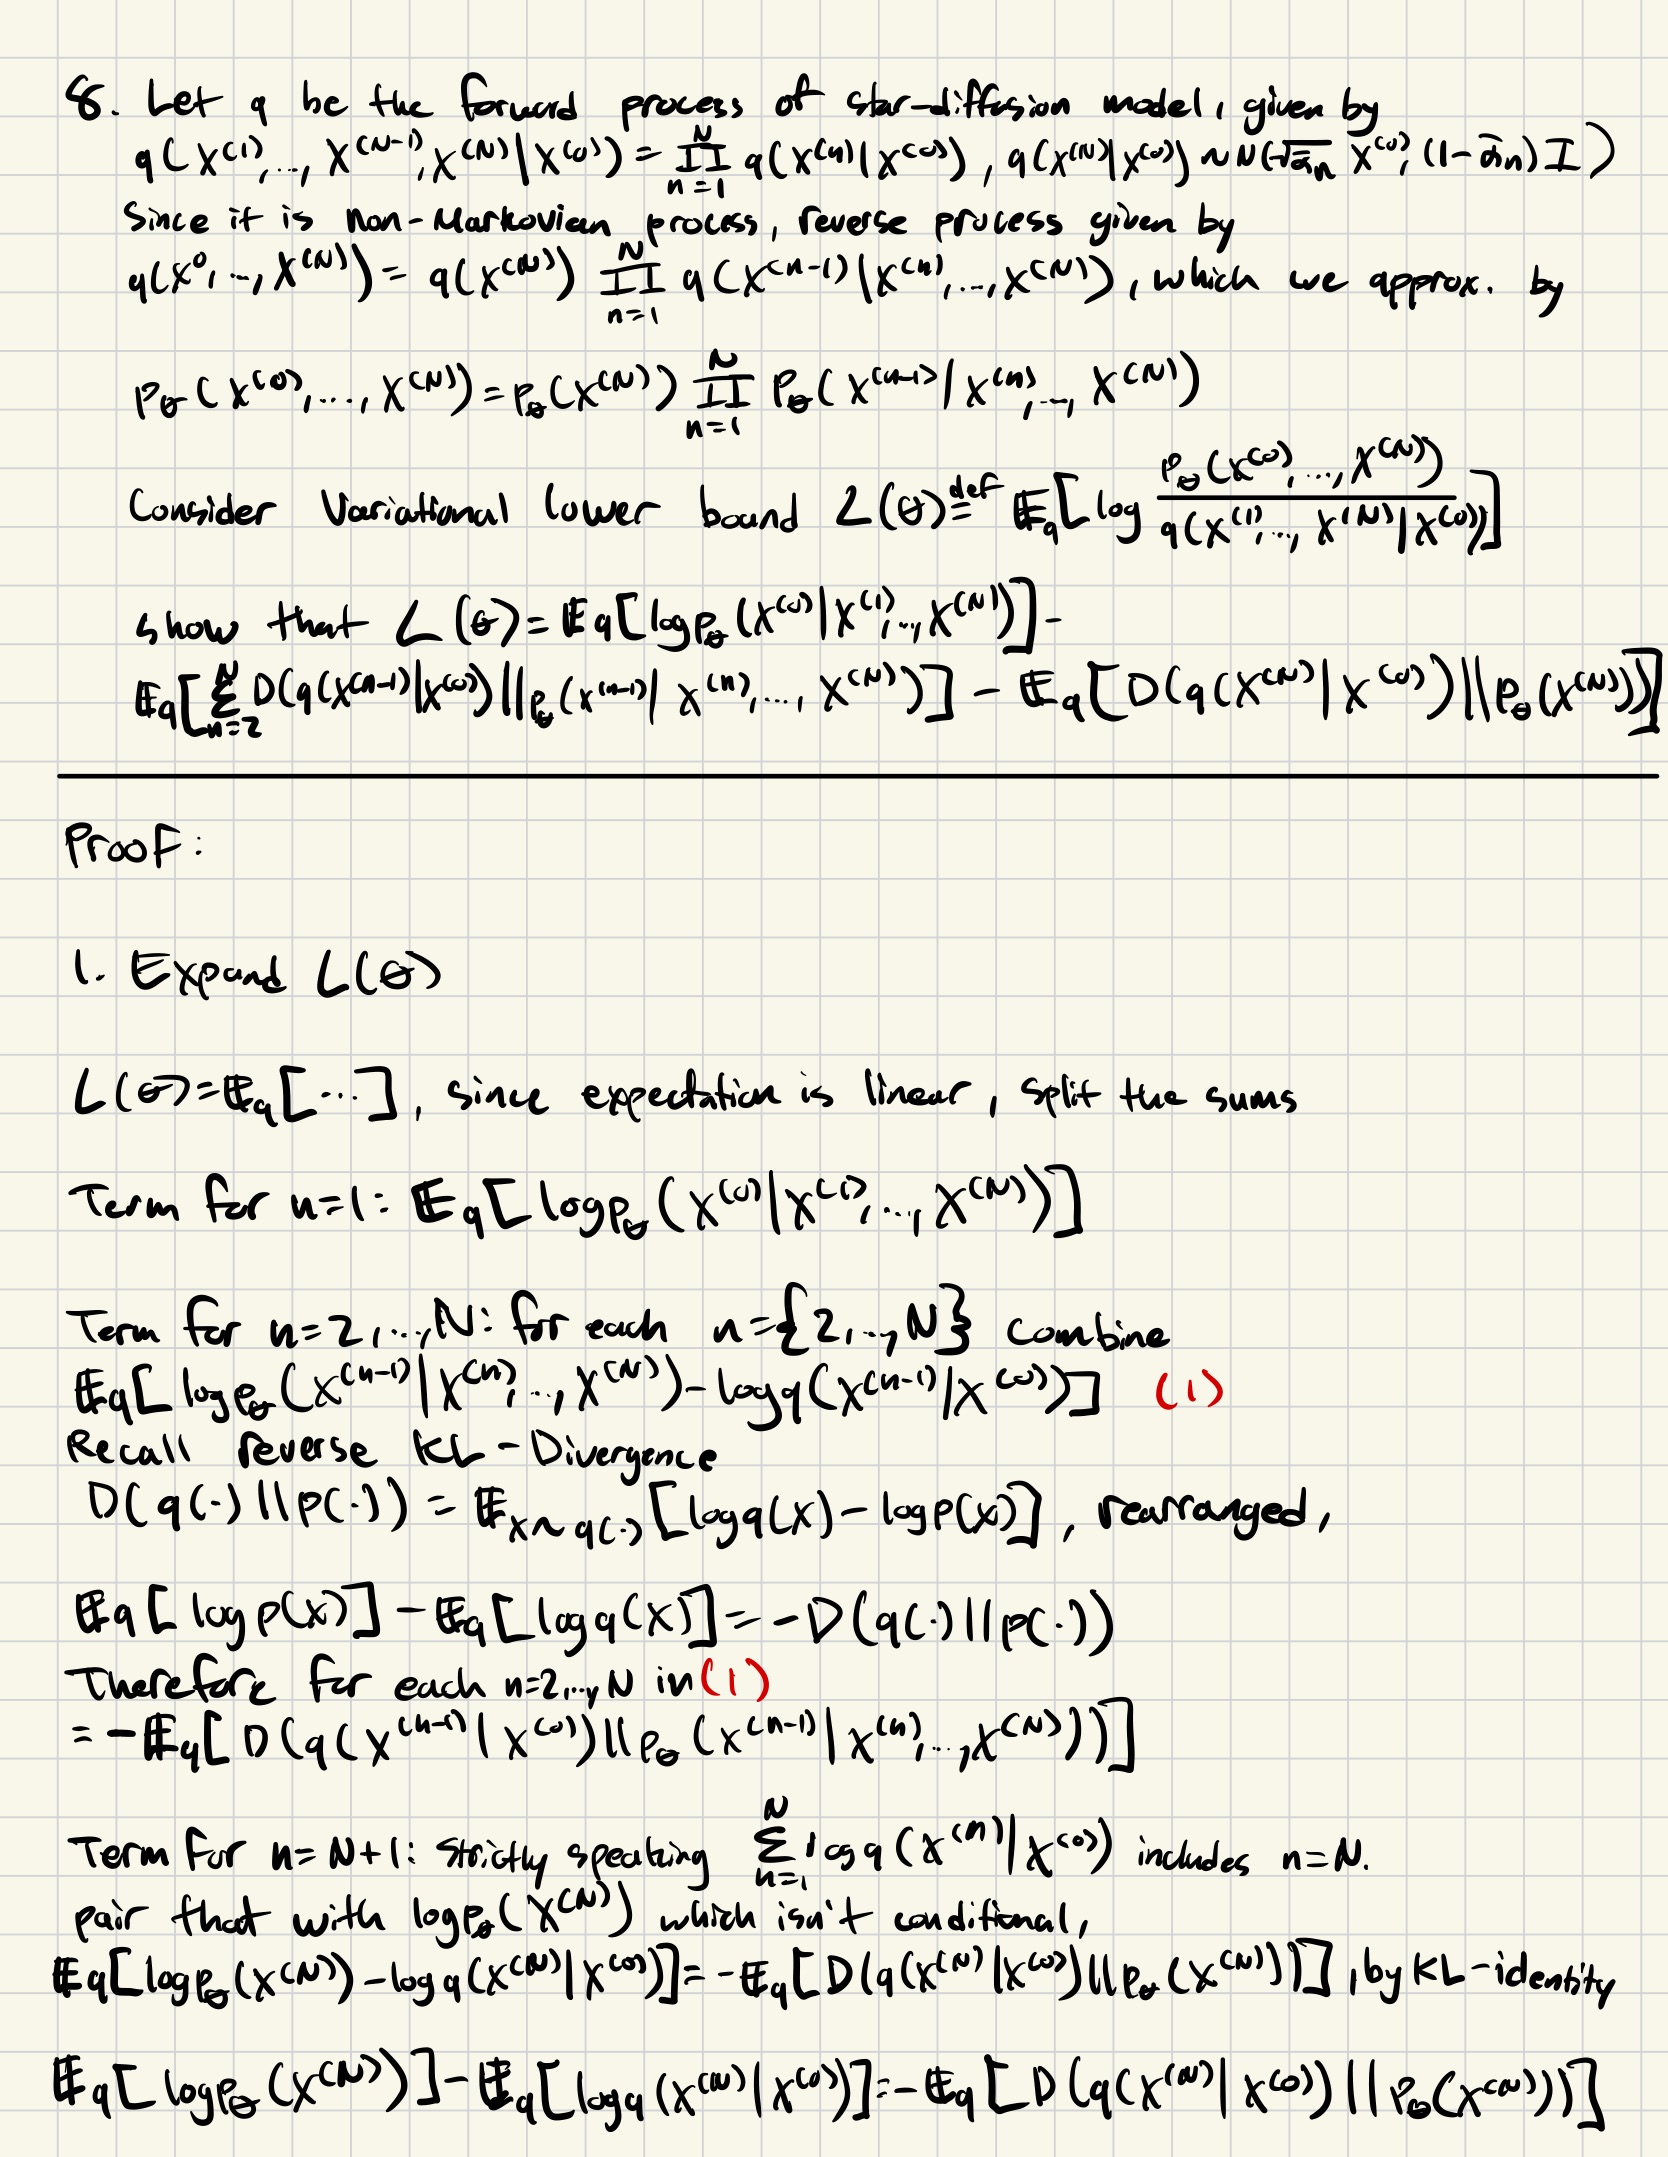 8. Let q be the forward process of star-diffusion model, given by
q(X^(1),..., X^(N-1), X^(N) | X^(0)) = ∏_{n=1}^{N} q(X^(n) | X^(0)), q(X^(N) | X^(0)) ~ N(√ᾱ_n X^(0), (1-ᾱ_n) I)
Since it is non-Markovian process, reverse process given by
q(X^0, ..., X^(N)) = q(X^(N)) ∏_{n=1}^{N} q(X^(n-1) | X^(n), ..., X^(N)), which we approx. by
p_θ(X^(0), ..., X^(N)) = p_θ(X^(N)) ∏_{n=1}^{N} p_θ(X^(n-1) | X^(n), ..., X^(N))
Consider Variational lower bound L(θ) ≝ 𝔼_q[log p_θ(X^(0), ..., X^(N)) / q(X^(1), ..., X^(N) | X^(0))]
show that L(θ) = 𝔼_q[log p_θ(X^(0) | X^(1), ..., X^(N))] -
𝔼_q[∑_{n=2}^{N} D(q(X^(n-1) | X^(0)) || p_θ(X^(n-1) | X^(n), ..., X^(N))] - 𝔼_q[D(q(X^(N) | X^(0)) || p_θ(X^(N)))]
Proof:
1. Expand L(θ)
L(θ) = 𝔼_q[...], since expectation is linear, split the sums
Term for n=1: 𝔼_q[log p_θ(X^(0) | X^(1), ..., X^(N))]
Term for n=2,...,N: for each n={2,..,N} combine
𝔼_q[log p_θ(X^(n-1) | X^(n), ..., X^(N)) - log q(X^(n-1) | X^(0))] (1)
Recall reverse KL-Divergence
D(q(·) || p(·)) = 𝔼_{X~q(·)}[log q(X) - log p(X)], rearranged,
𝔼_q[log p(X)] - 𝔼_q[log q(X)] = -D(q(·) || p(·))
Therefore for each n=2,..,N in (1)
= -𝔼_q[D(q(X^(n-1) | X^(0)) || p_θ(X^(n-1) | X^(n), ..., X^(N)))]
Term for n=N+1: strictly speaking ∑_{n=1}^{N} log q(X^(n) | X^(0)) includes n=N.
pair that with log p_θ(X^(N)) which isn't conditional,
𝔼_q[log p_θ(X^(N)) - log q(X^(N) | X^(0))] = -𝔼_q[D(q(X^(N) | X^(0)) || p_θ(X^(N)))], by KL-identity
𝔼_q[log p_θ(X^(N))] - 𝔼_q[log q(X^(N) | X^(0))] = -𝔼_q[D(q(X^(N) | X^(0)) || p_θ(X^(N)))]